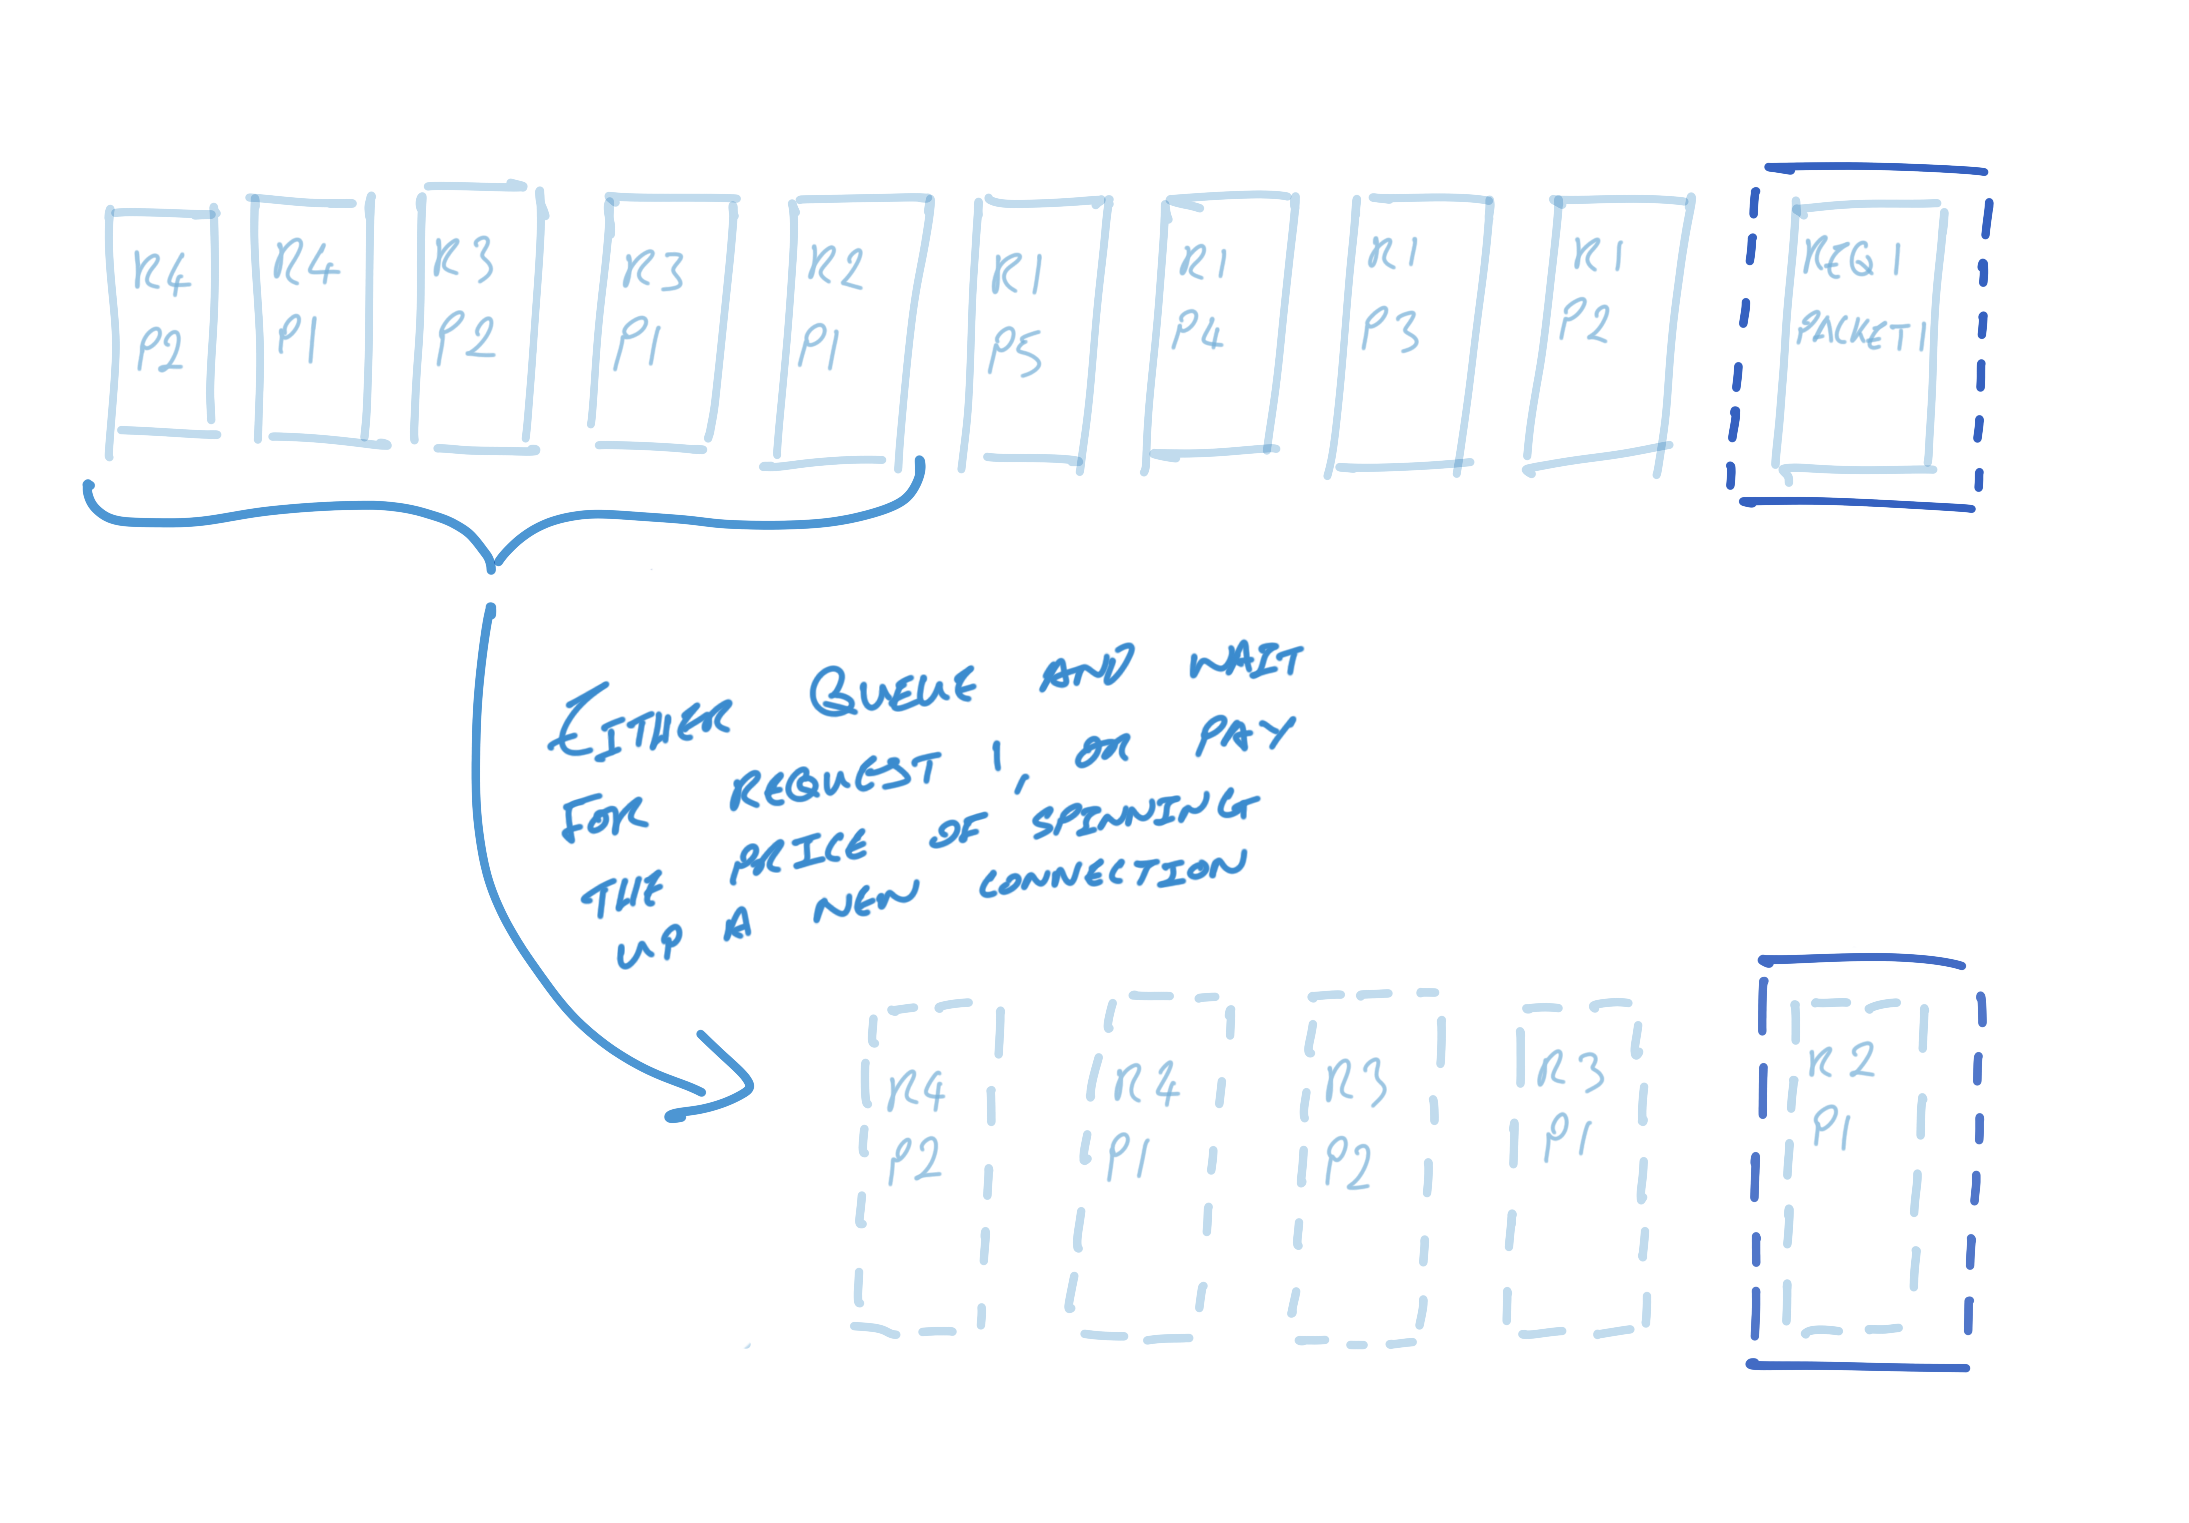 R4
P2
R4
P1
R3
P2
R3
P1
R2
P1
R1
P5
R1
P4
R1
P3
R1
P2
REQ 1
PACKET 1
EITHER QUEUE AND WAIT
FOR REQUEST 1, OR PAY
THE PRICE OF SPINNING
UP A NEW CONNECTION
R4
P2
R4
P1
R3
P2
R3
P1
R2
P1